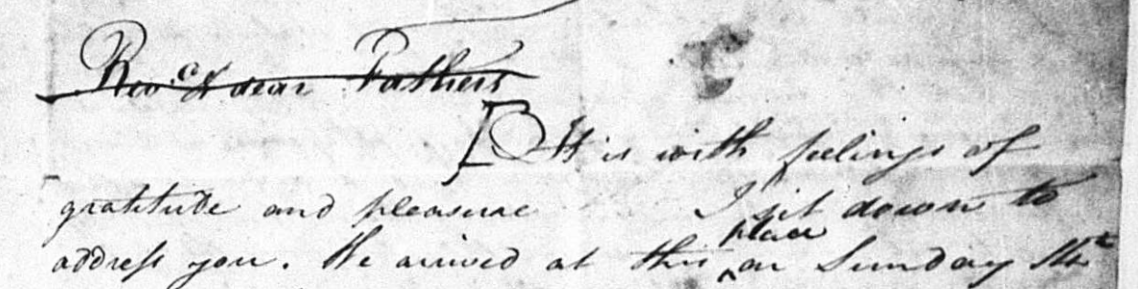 Revd & dear Fathers
[It is with feelings of
gratitude and pleasure I sit down to
place
address you. We arrived at this ^ on Sunday